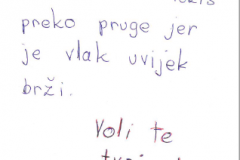 preko pruge jer
je vlak uvijek
brži.
Voli te